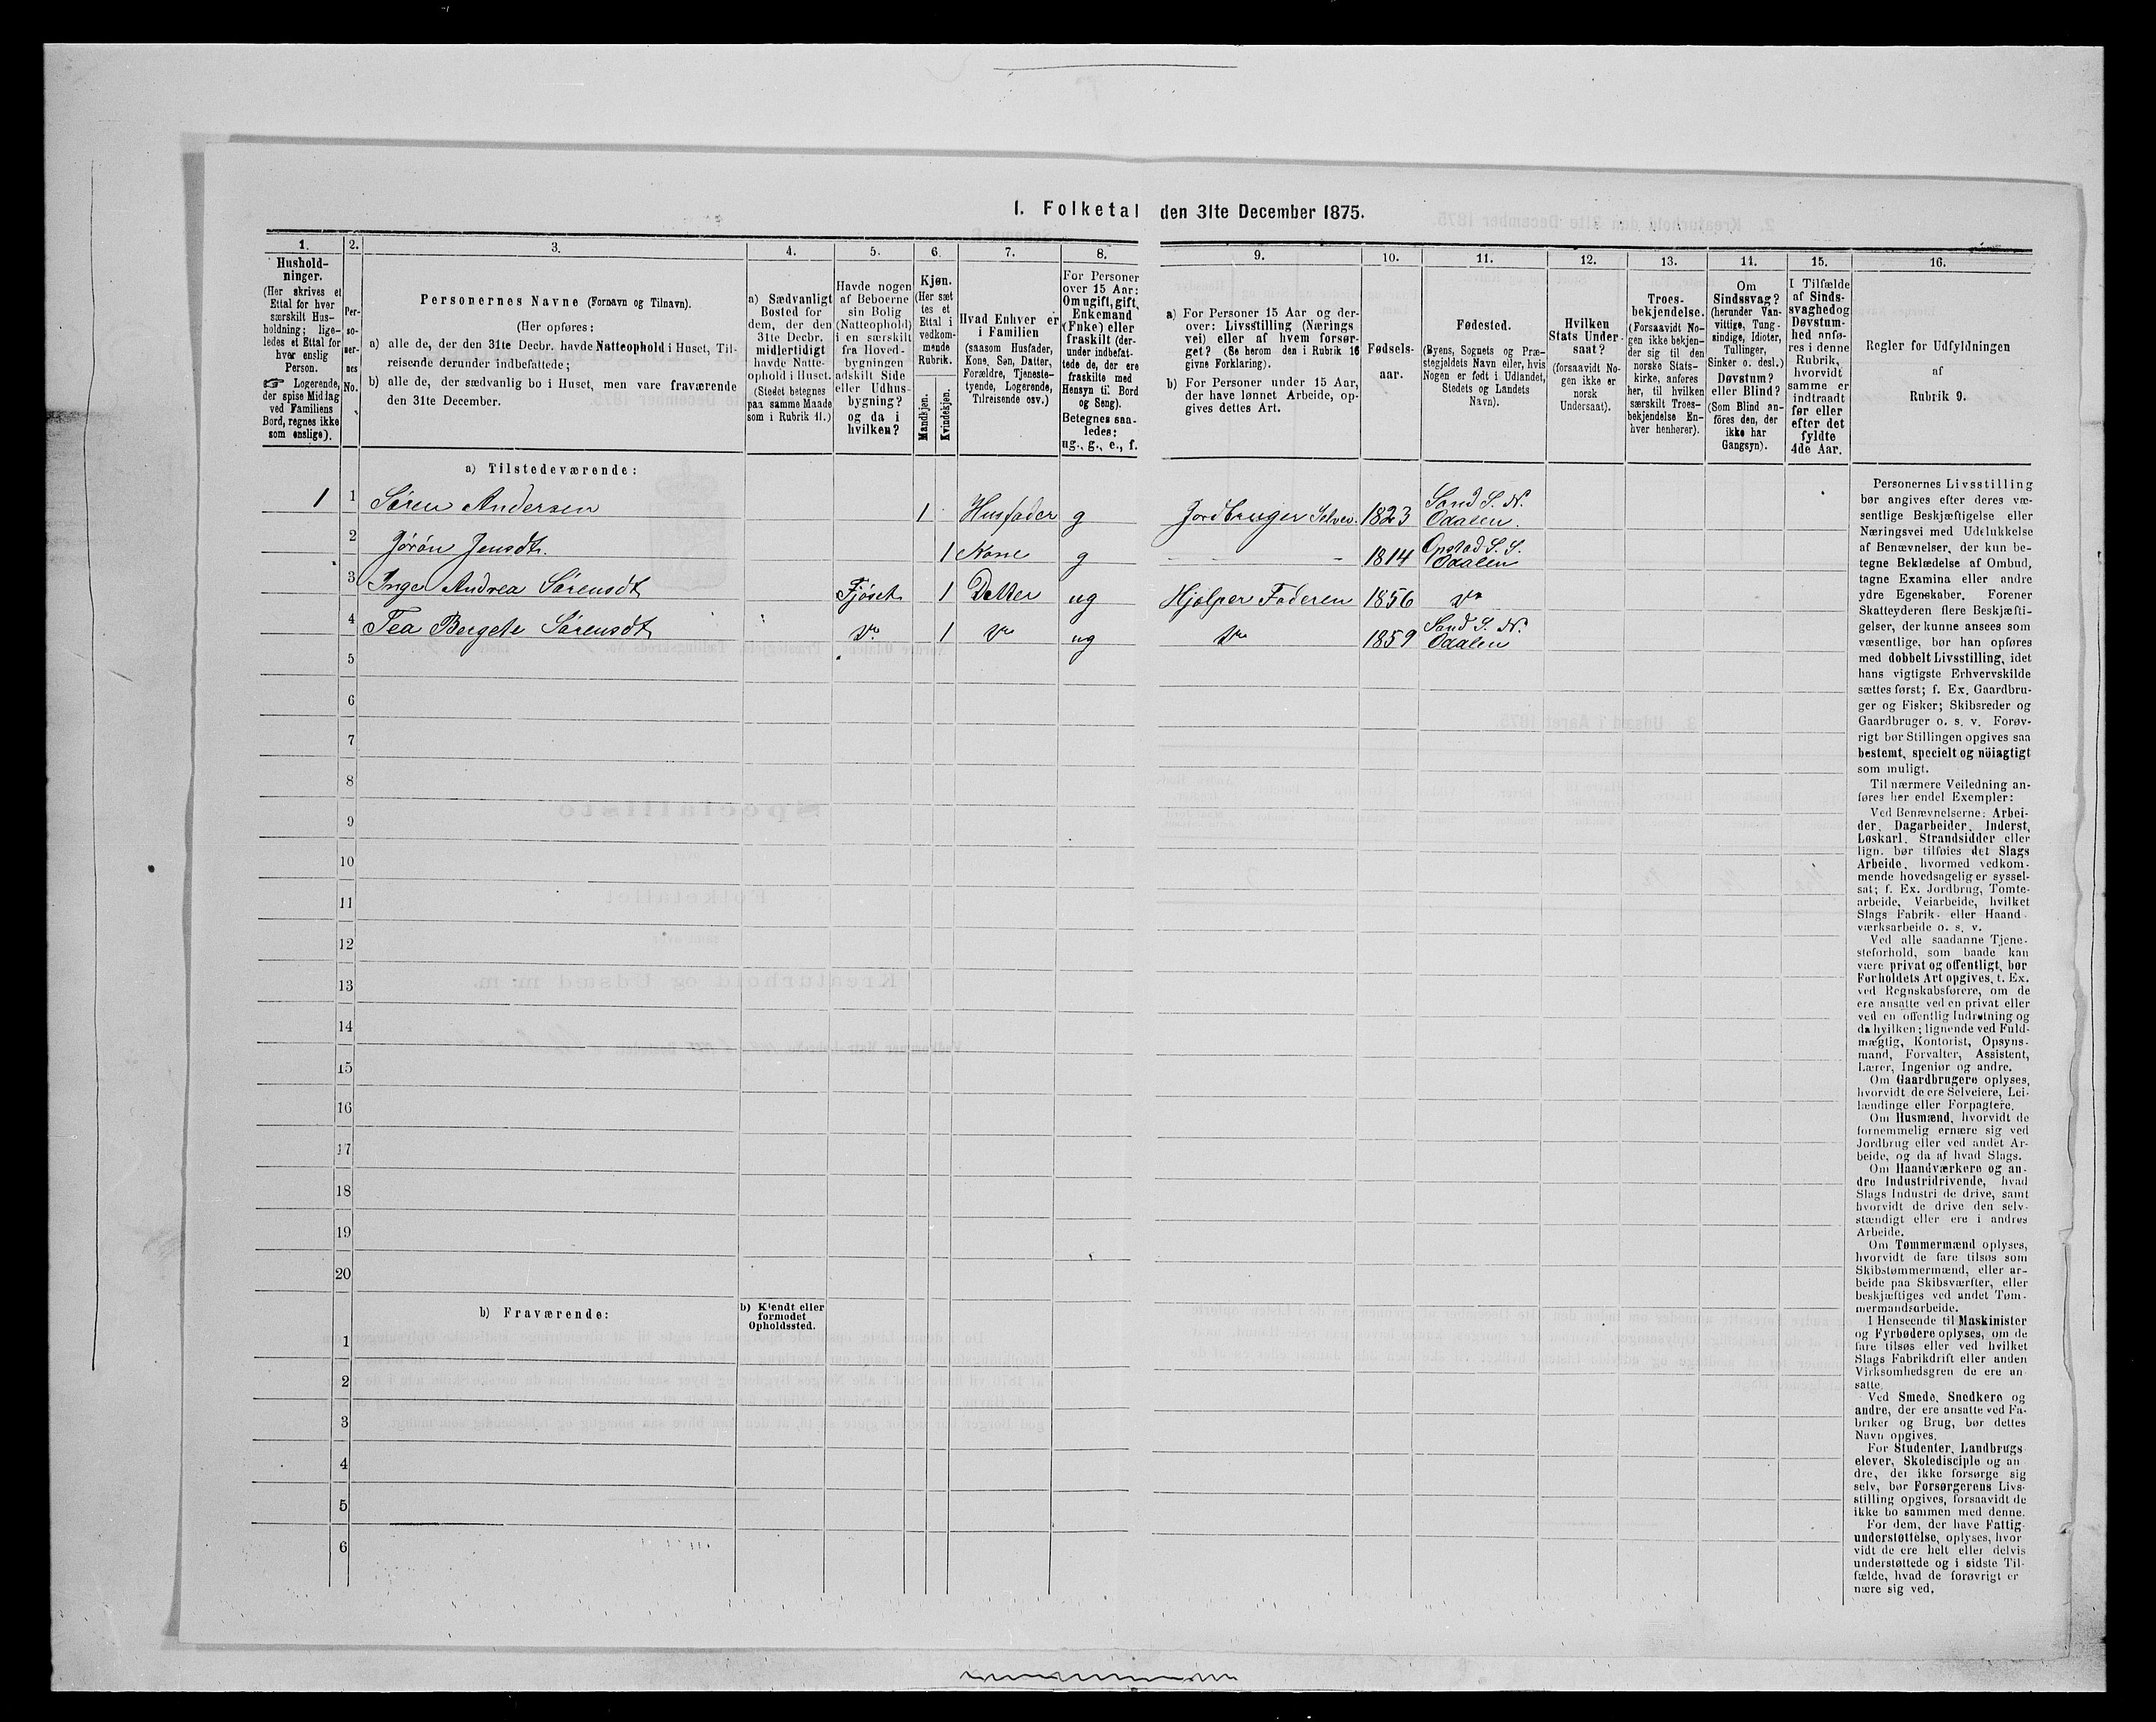 1. Folketal den 31te December 1875.
1.
Hushold-
ninger.
(Her skrives et
Ettal for hver
særskilt Hus-
holdning; lige-
ledes et Ettal for
hver enslig
Person.
☞ Logerende,
der spise Middag
ved Familiens
Bord, regnes ikke
som enslige).
2.
Per-
so-
ner-
nes
No.
3.
Personernes Navne (Fornavn og Tilnavn).
(Her opføres:
a) alle de, der den 31te Decbr. havde Natteophold i Huset, Til-
reisende derunder indbefattede;
b) alle de, der sædvanlig bo i Huset, men vare fraværende
den 31te December.
4.
a) Sædvanligt
Bosted for
dem, der den
31te Decbr.
midlertidigt
havde Natte-
ophold i Huset.
(Stedet betegnes
paa samme Maade
som i Rubrik 11.)
5.
Havde nogen
af Beboerne
sin Bolig
(Natteophold)
i en særskilt
fra Hoved-
bygningen
adskilt Side
eller Udhus-
bygning?
og da i
hvilken?
6.
Kjøn.
(Her sæt
tes et
Ettal i
vedkom-
mende
Rubrik.
Mandkjøn.
Kvindekjøn.
7.
Hvad Enhver er
i Familien
(saasom Husfader,
Kone, Søn, Datter,
Forældre, Tjeneste-
tyende, Logerende,
Tilreisende osv.)
8.
For Personer
over 15 Aar:
Om ugift, gift,
Enkemand
(Enke) eller
fraskilt (der-
under indbefat-
tede de, der ere
fraskilte med
Hensyn til Bord
og Seng).
Betegnes saa-
ledes:
ug., g., e., f.
9.
a) For Personer 15 Aar og der-
over: Livsstilling (Nærings
vei) eller af hvem forsør-
get? (Se herom den i Rubrik 16
givne Forklaring).
b) For Personer under 15 Aar,
der have lønnet Arbeide, op-
gives dettes Art.
10.
Fødsels-
aar.
11.
Fødested.
(Byens, Sognets og Præ-
stegjeldets Navn eller, hvis
Nogen er født i Udlandet,
Stedets og Landets
Navn).
12.
Hvilken
Stats Under
saat?
(forsaavidt No-
gen ikke er
norsk
Undersaat).
13.
Troes-
bekjendelse.
(Forsaavidt No-
gen ikke bekjen-
der sig til den
norske Stats-
kirke, anføres
her, til hvilken
særskilt Troes-
bekjendelse En-
hver henhører).
14.
Om
Sindssvag?
(herunder Van-
vittige, Tung-
sindige, Idioter,
Tullinger,
Sinker o. desl.)
Døvstum?
eller Blind?
(Som Blind an-
føres den, der
ikke har
Gangsyn).
15.
I Tilfælde
af Sinds-
svaghed og
Døvstum-
hed anfø-
res i denne
Rubrik,
hvorvidt
samme er
indtraadt
før eller
efter det
fyldte
4de Aar.
16.
Regler for Udfyldningen
af
Rubrik 9.
a) Tilstedeværende:
1 1 Søren Andersen 1 Husfader g Jordbruger Selvei. 1823 Sand S. N.
Odalen.
2 Jórón Jensdt. 1 Kone g - - 1814 Opstad S. S.
Odalen
3 Inge Andrea Sørensdt Fjöset 1 Datter ug Hjælper Faderen 1856 do
4 Tea Bergete Sørensdt do 1 do ug do 1859 Sand S. N.
Odalen
5
6
7
8
9
10
11
12
13
14
15
16
17
18
19
20
b) Fraværende:
b) Kjendt eller
formodet
Opholdssted.
1
2
3
4
5
6
Personernes Livsstilling
bør angives efter deres væ-
sentlige Beskjæftigelse eller
Næringsvei med Udelukkelse
af Benævnelser, der kun be-
tegne Beklædelse af Ombud,
tagne Examina eller andre
ydre Egenskaber. Forener
Skatteyderen flere Beskjæfti-
gelser, der kunne ansees som
væsentlige, bør han opføres
med dobbelt Livsstilling, idet
hans vigtigste Erhvervskilde
sættes først; f. Ex. Gaardbru-
ger og Fisker; Skibsreder og
Gaardbruger o. s. v. Forøv-
rigt bør Stillingen opgives saa
bestemt, specielt og nöiagtigt
som muligt.
Til nærmere Veiledning an-
føres her endel Exempler:
Ved Benævnelserne: Arbei-
der, Dagarbeider, Inderst,
Løskarl, Strandsidder eller
lign. bør tilføies det Slags
Arbeide, hvormed vedkom-
mende hovedsagelig er syssel-
sat; f. Ex. Jordbrug, Tomte-
arbeide, Veiarbeide, hvilket
Slags Fabrik- eller Haand-
værksarbeide o. s. v.
Ved alle saadanne Tjene-
steforhold, som baade kan
være privat og offentligt, bør
Forholdets Art opgives, t. Ex.
ved Regnskabsførere, om de
ere ansatte ved en privat eller
ved en offentlig Indretning og
da hvilken; lignende ved Fuld-
mægtig, Kontorist, Opsyns-
mand, Forvalter, Assistent,
Lærer, Ingeniør og andre.
Om Gaardbrugere oplyses,
hvorvidt de ere Selveiere, Lei-
lændinge eller Forpagtere.
Om Husmænd, hvorvidt de
fornemmelig ernære sig ved
Jordbrug eller ved andet Ar-
beide, og da af hvad Slags.
Om Haandværkere og an-
dre Industridrivende, hvad
Slags Industri de drive, samt
hvorvidt de drive den selv-
stændigt eller ere i andres
Arbeide.
Om Tømmermænd oplyses,
hvorvidt de fare tilsøs som
Skibstømmermænd, eller ar-
beide paa Skibsværfter, eller
beskjæftiges ved andet Tøm-
mermandsarbeide.
I Henseende til Maskinister
og Fyrbødere oplyses, om de
fare tilsøs eller ved hvilket
Slags Fabrikdrift eller anden
Virksomhedsgren de ere an-
satte.
Ved Smede, Snedkere og
andre, der ere ansatte ved Fa-
briker og Brug, bør dettes
Navn opgives.
For Studenter, Landbrugs-
elever, Skoledisciple og an
dre, der ikke forsørge sig
selv, bør Forsørgerens Livs-
stilling opgives, forsaavidt de
ikke bo sammen med denne.
For dem, der have Fattig-
understøttelse, oplyses, hvor
vidt de ere helt eller delvis
understøttede og i sidste Til-
fælde, hvad de forøvrigt er
nære sig ved.